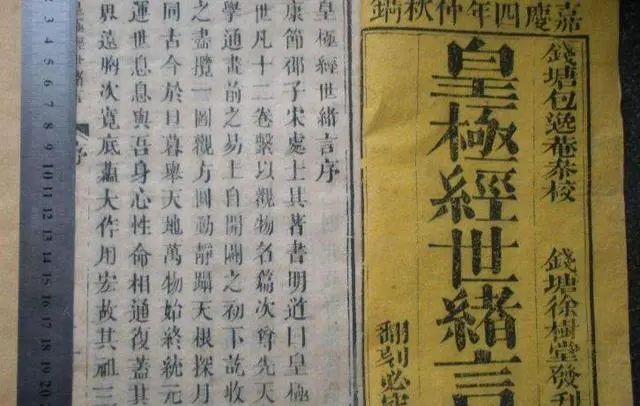 嘉慶四年仲秋鐫
錢塘包逸菴恭校
錢塘徐樹堂發刊
皇極經世緒言
翻刻必
皇極經世緒言序
康節邵子宋處士其著書明道曰皇極
世凡十二卷繫以觀物名篇次尊先天
學通畫前之易上自開闢之初下訖收
之盡攬一圖觀方圓動靜躡天根探月
同古今於旦暮舉天地萬物始終統元
運世息息與吾身心性命相通復蓋其
界遠胸次寬底蘊大作用宏故其祖三
序
3 4 5 6 7 8 9 10 11 12 13 14 15 16 17 18 19 20